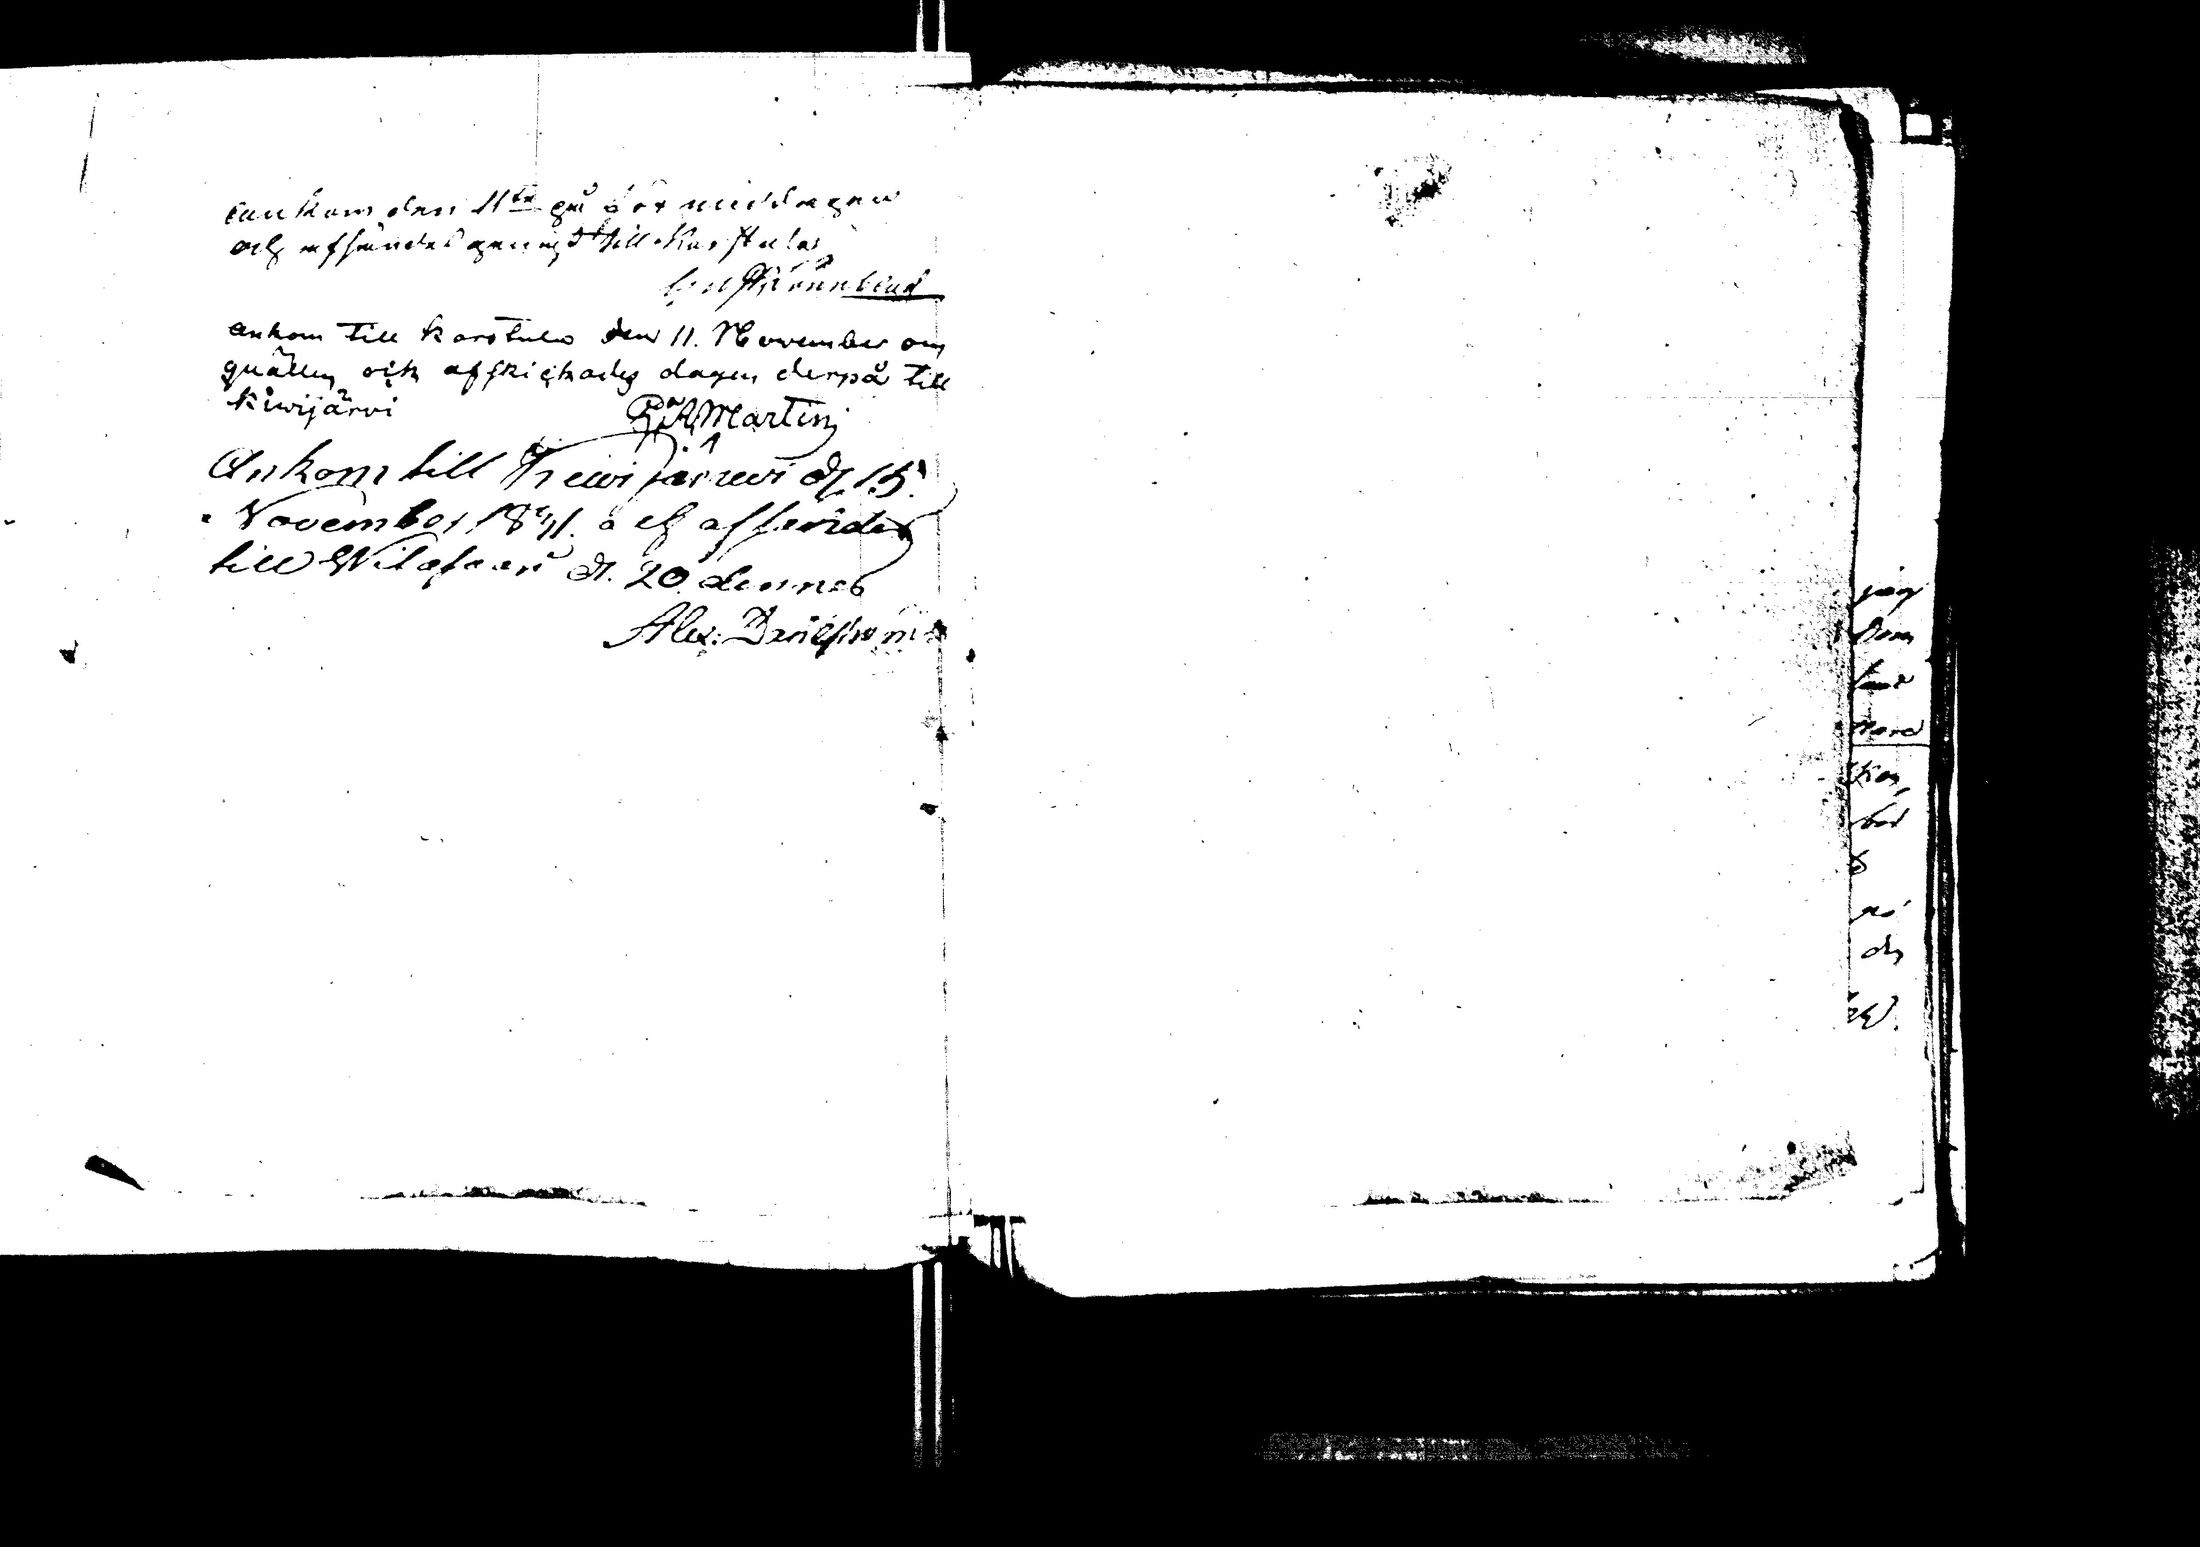 ankom den 11te på för middagen
och afsändes genast till Karstula
ankom till Karstula den 11. November om
quällen och affkickades dagen derpå till
Kiwijärvi P. A. Martin
Ankom till Kiwijärwi d. 15.
November 1841. och afsändes
till Wiitasaari d. 20 dennes
Alex:
jag
Dom
land
Nord
Kon
bod
på
den